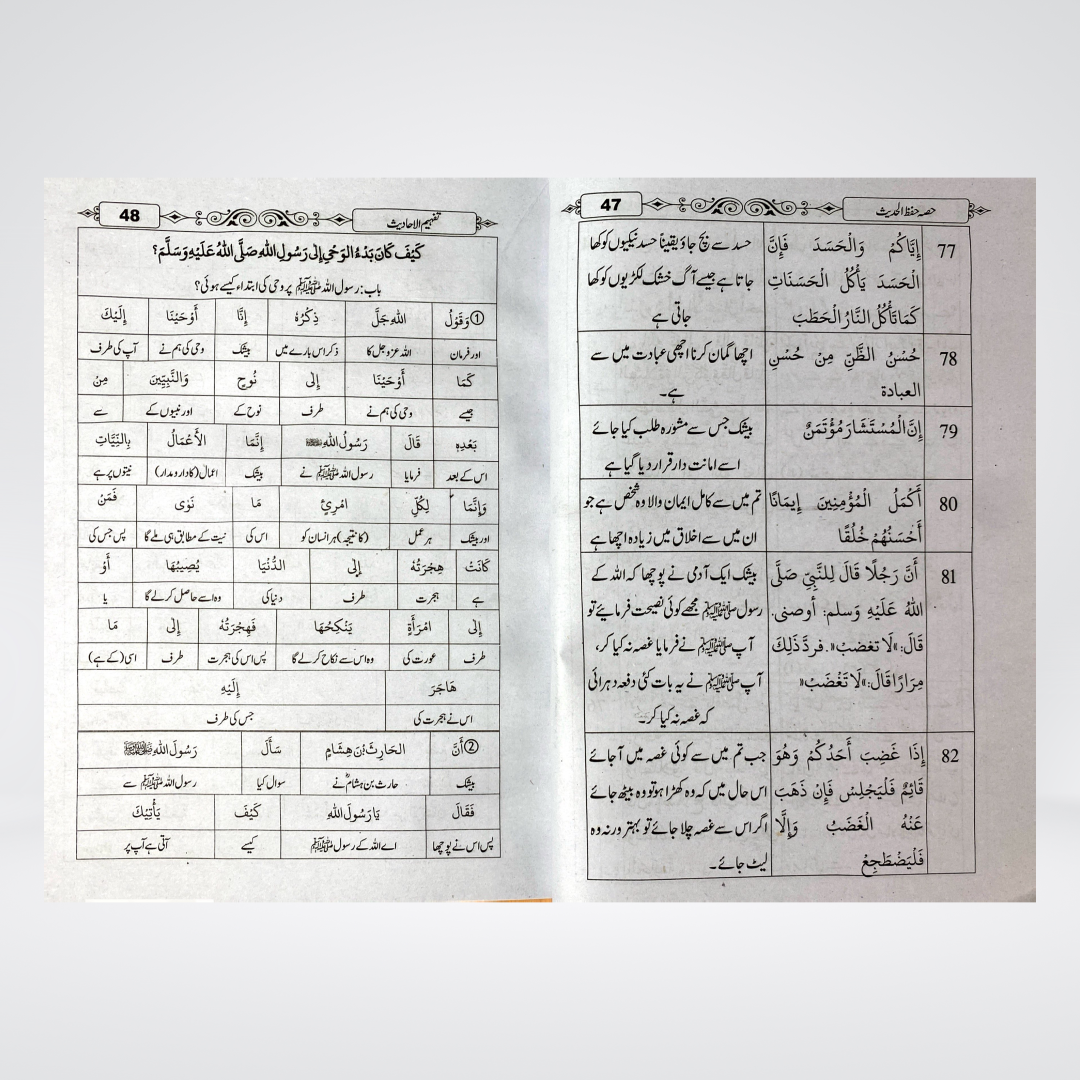 حصہ حفظ الحدیث
47
77
إِيَّاكُمْ وَالْحَسَدَ فَإِنَّ
الْحَسَدَ يَأْكُلُ الْحَسَنَاتِ
كَمَا تَأْكُلُ النَّارُ الْحَطَبَ
حسد سے بچ جاؤ یقیناً حسد نیکیوں کو کھا
جاتا ہے جیسے آگ خشک لکڑیوں کو کھا
جاتی ہے
78
حُسْنُ الظَّنِّ مِنْ حُسْنِ
العبادة
اچھا گمان کرنا اچھی عبادت میں سے
ہے۔
79
إِنَّ الْمُسْتَشَارَ مُؤْتَمَنٌ
بیشک جس سے مشورہ طلب کیا جائے
اسے امانت دار قرار دیا گیا ہے
80
أَكْمَلُ الْمُؤْمِنِينَ إِيمَانًا
أَحْسَنُهُمْ خُلُقًا
تم میں سے کامل ایمان والا وہ شخص ہے جو
ان میں سے اخلاق میں زیادہ اچھا ہے
81
أَنَّ رَجُلًا قَالَ لِلنَّبِيِّ صَلَّى
اللهُ عَلَيْهِ وَسلم: أوصنى.
قَالَ: »لَا تغضبْ«. فردَّ ذَلِكَ
مِرَارًا قَالَ: »لَا تَغْضَبْ«
بیشک ایک آدمی نے پوچھا کہ اللہ کے
رسول ﷺ مجھے کوئی نصیحت فرمائیے تو
آپ ﷺ نے فرمایا غصہ نہ کیا کر،
آپ ﷺ نے یہ بات کئی دفعہ دہرائی
کہ غصہ نہ کیا کر۔
82
إِذَا غَضِبَ أَحَدُكُمْ وَهُوَ
قَائِمٌ فَلْيَجْلِسْ فَإِنْ ذَهَبَ
عَنْهُ الْغَضَبُ وَإِلَّا
فَلْيَضْطَجِعْ
جب تم میں سے کوئی غصہ میں آجائے
اس حال میں کہ وہ کھڑا ہو تو وہ بیٹھ جائے
اگر اس سے غصہ چلا جائے تو بہتر ورنہ وہ
لیٹ جائے۔
تفہیم الاحادیث
48
كَيْفَ كَانَ بَدْءُ الوَحْيِ إِلَى رَسُولِ اللهِ صَلَّى اللهُ عَلَيْهِ وَسَلَّمَ؟
باب: رسول اللہ ﷺ پر وحی کی ابتداء کیسے ہوئی؟
① وَقَوْلُ اللهِ جَلَّ ذِكْرُهُ إِنَّا أَوْحَيْنَا إِلَيْكَ
اور فرمان اللہ عزوجل کا ذکر اس بارے میں بیشک وحی کی ہم نے آپ کی طرف
كَمَا أَوْحَيْنَا إِلَى نُوحٍ وَالنَّبِيِّينَ مِنْ
جیسے وحی کی ہم نے طرف نوح کے اور نبیوں کے سے
بَعْدِهِ قَالَ رَسُولُ اللهِ ﷺ إِنَّمَا الأَعْمَالُ بِالنِّيَّاتِ
اس کے بعد فرمایا رسول اللہ ﷺ نے بیشک اعمال (کا دارومدار) نیتوں پر ہے
وَإِنَّمَا لِكُلِّ امْرِئٍ مَا نَوَى فَمَنْ
اور بیشک ہر عمل (کا نتیجہ) ہر انسان کو اس کی نیت کے مطابق ہی ملے گا پس جس کی
كَانَتْ هِجْرَتُهُ إِلَى الدُّنْيَا يُصِيبُهَا أَوْ
ہے ہجرت طرف دنیا کی وہ اسے حاصل کرلے گا یا
إِلَى امْرَأَةٍ يَنْكِحُهَا فَهِجْرَتُهُ إِلَى مَا
طرف عورت کی وہ اس سے نکاح کرلے گا پس اس کی ہجرت طرف اسی (کے ہے)
هَاجَرَ إِلَيْهِ
اس نے ہجرت کی جس کی طرف
② أَنَّ الحَارِثَ بْنَ هِشَامٍ سَأَلَ رَسُولَ اللهِ ﷺ
بیشک حارث بن ہشامؓ نے سوال کیا رسول اللہ ﷺ سے
فَقَالَ يَا رَسُولَ اللهِ كَيْفَ يَأْتِيكَ
پس اس نے پوچھا اے اللہ کے رسول ﷺ کیسے آتی ہے آپ پر